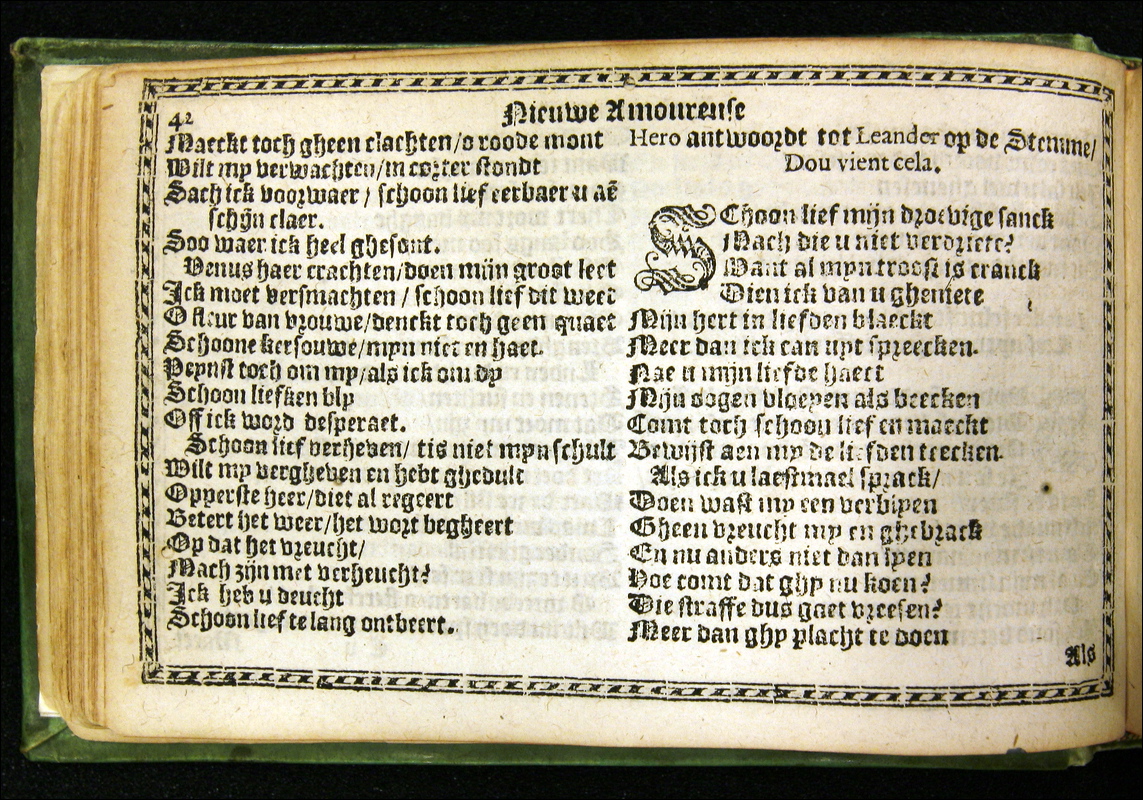 42
Nieuwe Amoureuse
Maeckt toch gheen clachten/o roode mont
Wilt my verwachten/in corter stondt
Sach ick voorwaer / schoon lief eerbaer u aẽ
schijn claer.
Soo waer ick heel ghesont.
Venus haer crachten/doen mijn groot leet
Ick moet versmachten / schoon lief dit weet
O fleur van vrouwe/denckt toch geen quaet
Schoone kersouwe/myn niet en haet.
Peynst toch om my/als ick om dy
Schoon liefken bly
Off ick word desperaet.
Schoon lief verheven/ tis niet myn schult
Wilt my vergheven en hebt ghedult
Opperste heer/diet al regeert
Betert het weer/het wort begheert
Op dat het vreucht/
Mach zijn met verheucht?
Ick heb u deucht
Schoon lief te lang ontbeert.
Hero antwoordt tot Leander op de Stemme/
Dou vient cela.
SChoon lief mijn droevige sanck
Mach die u niet verdriete?
Want al myn troost is cranck
Dien ick van u gheniete
Mijn hert in liefden blaeckt
Meer dan ick can uyt spreecken.
Nae u mijn liefde haect
Mijn oogen vloeyen als beecken
Comt toch schoon lief en maeckt
Bewijst aen my de liefden treecken.
Als ick u laestmael sprack/
Doen wast my een verblyen
Gheen vreucht my en ghebrack
En nu anders niet dan lyen
Hoe comt dat ghy nu koen?
Die straffe dus gaet vreesen?
Meer dan ghy placht te doen
Als